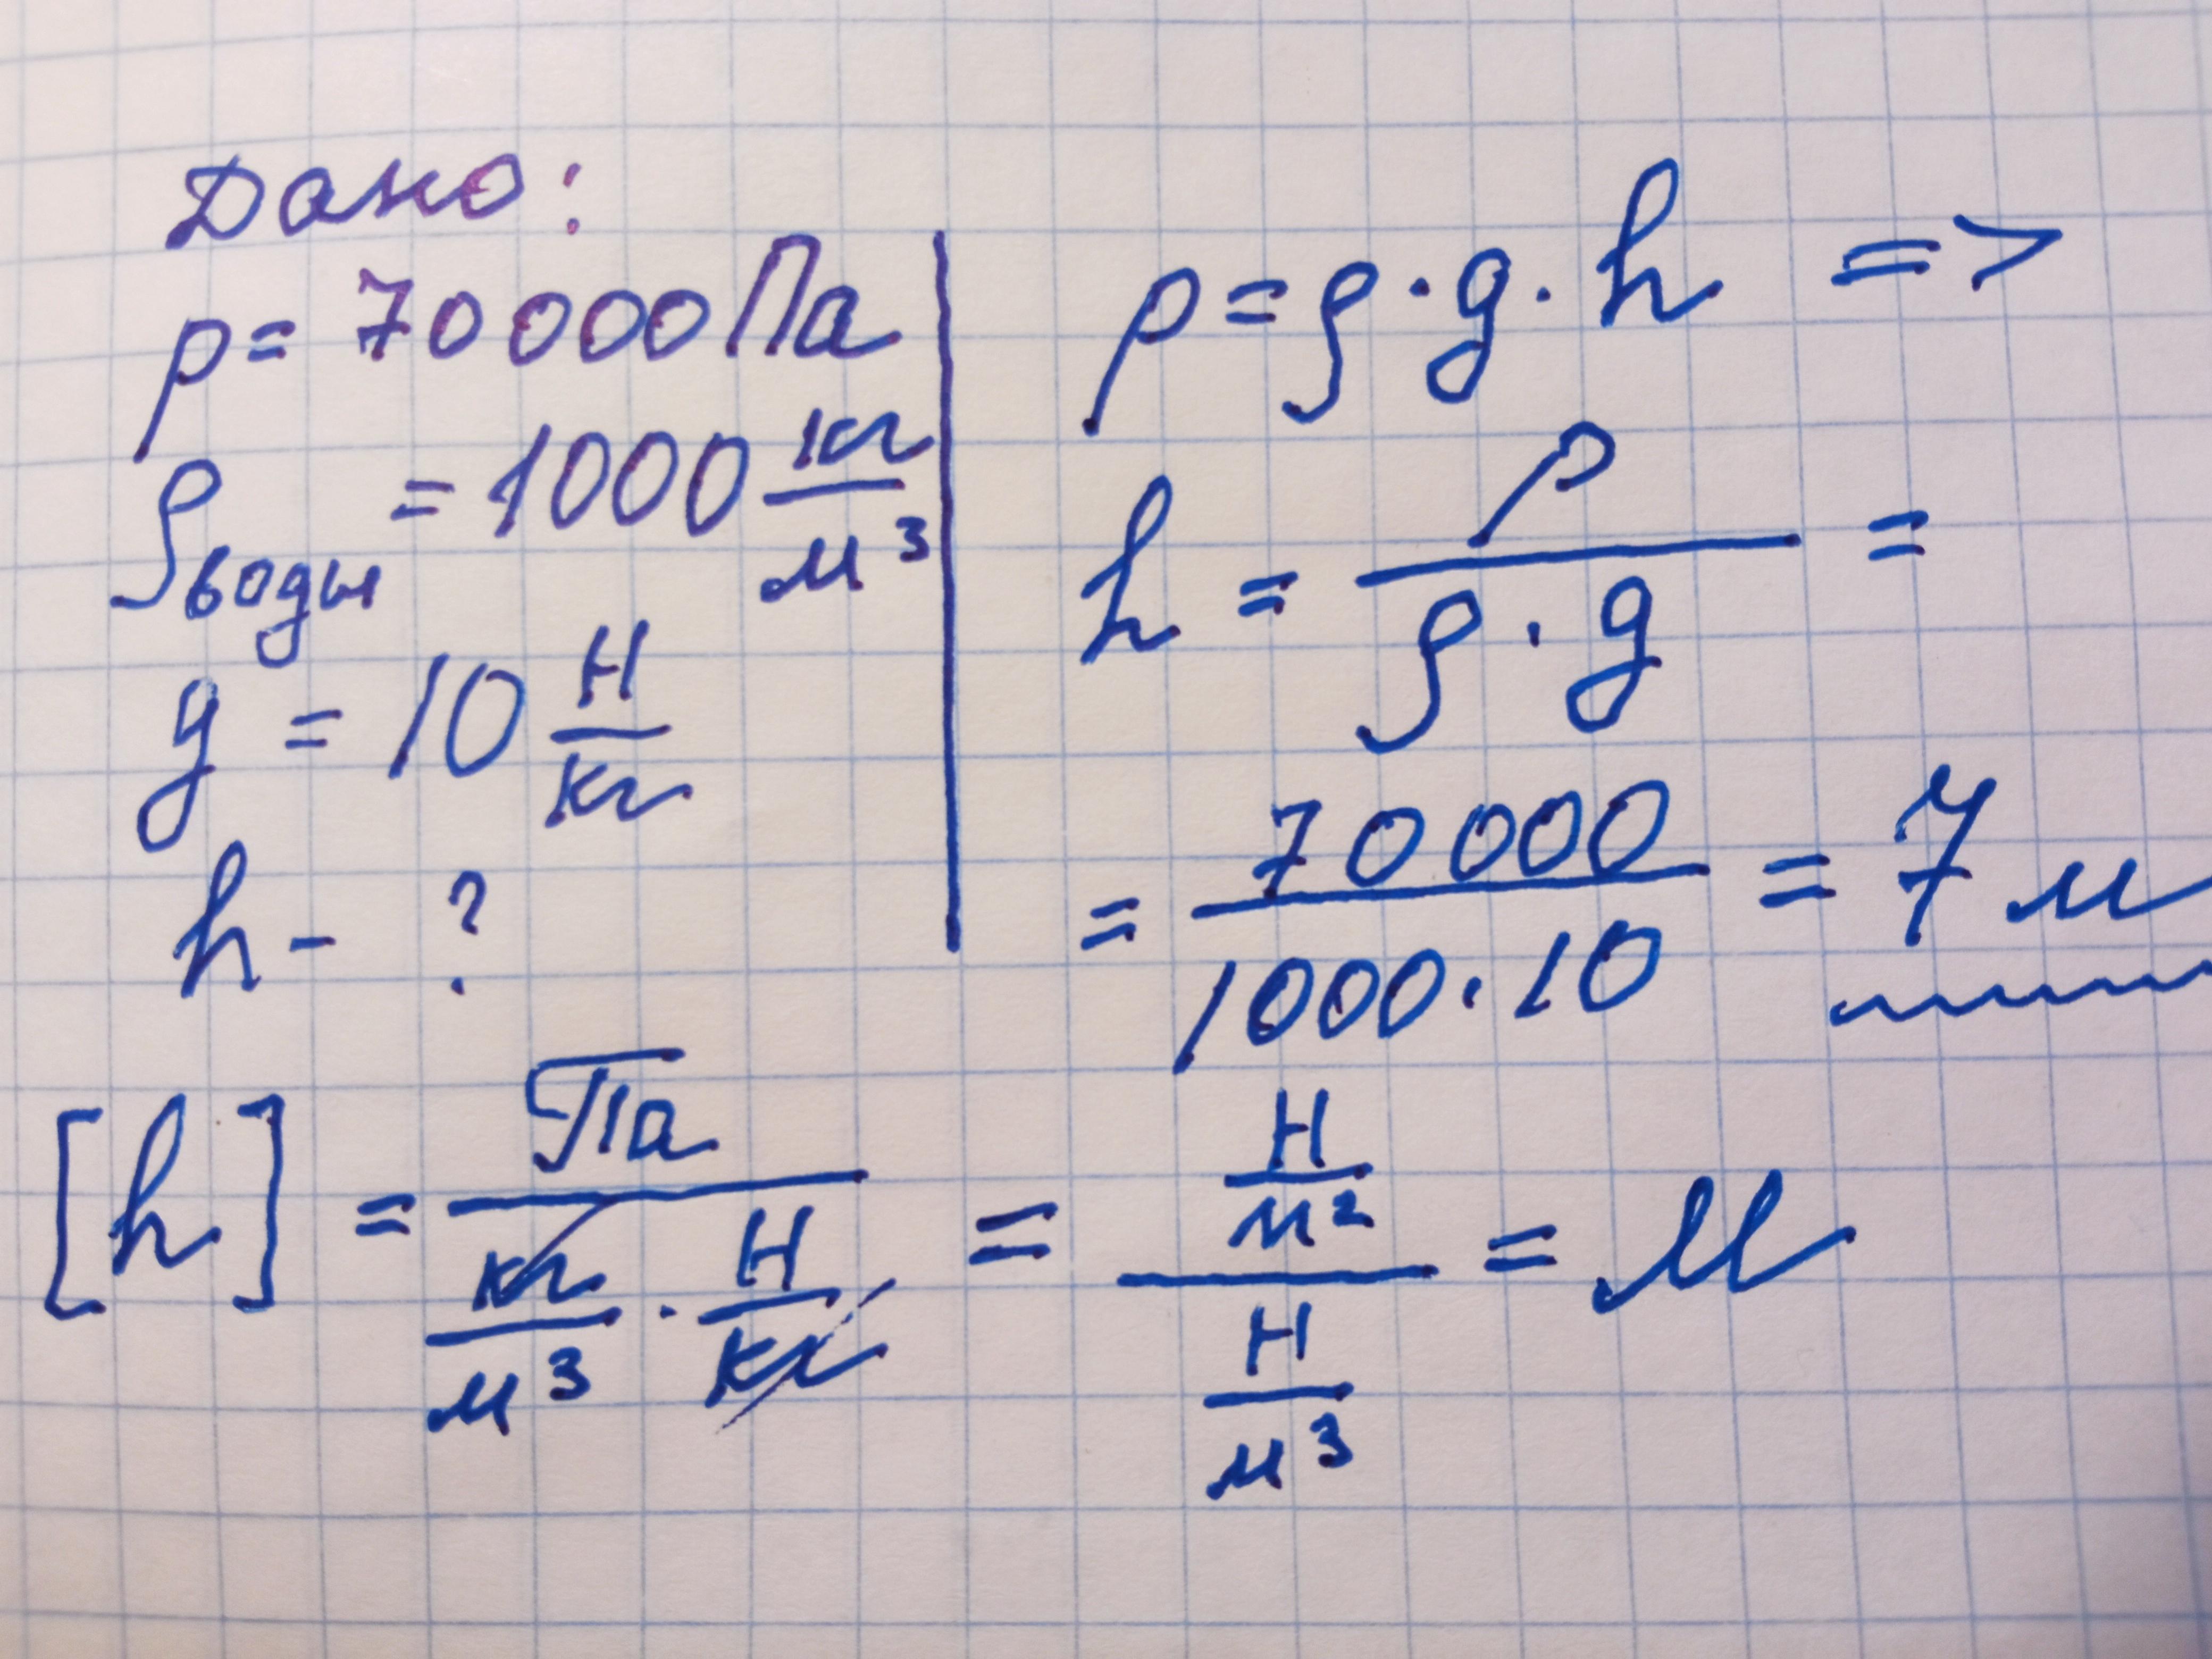 Дано:
p = 70000 Па
ρводы = 1000 кг/м³
g = 10 Н/кг
h - ?
p = ρ · g · h =>
h = p/(ρ · g) =
= 70000/(1000 · 10) = 7 м
[h] = Па/(кг/м³ · Н/кг) = (Н/м²)/(Н/м³) = м